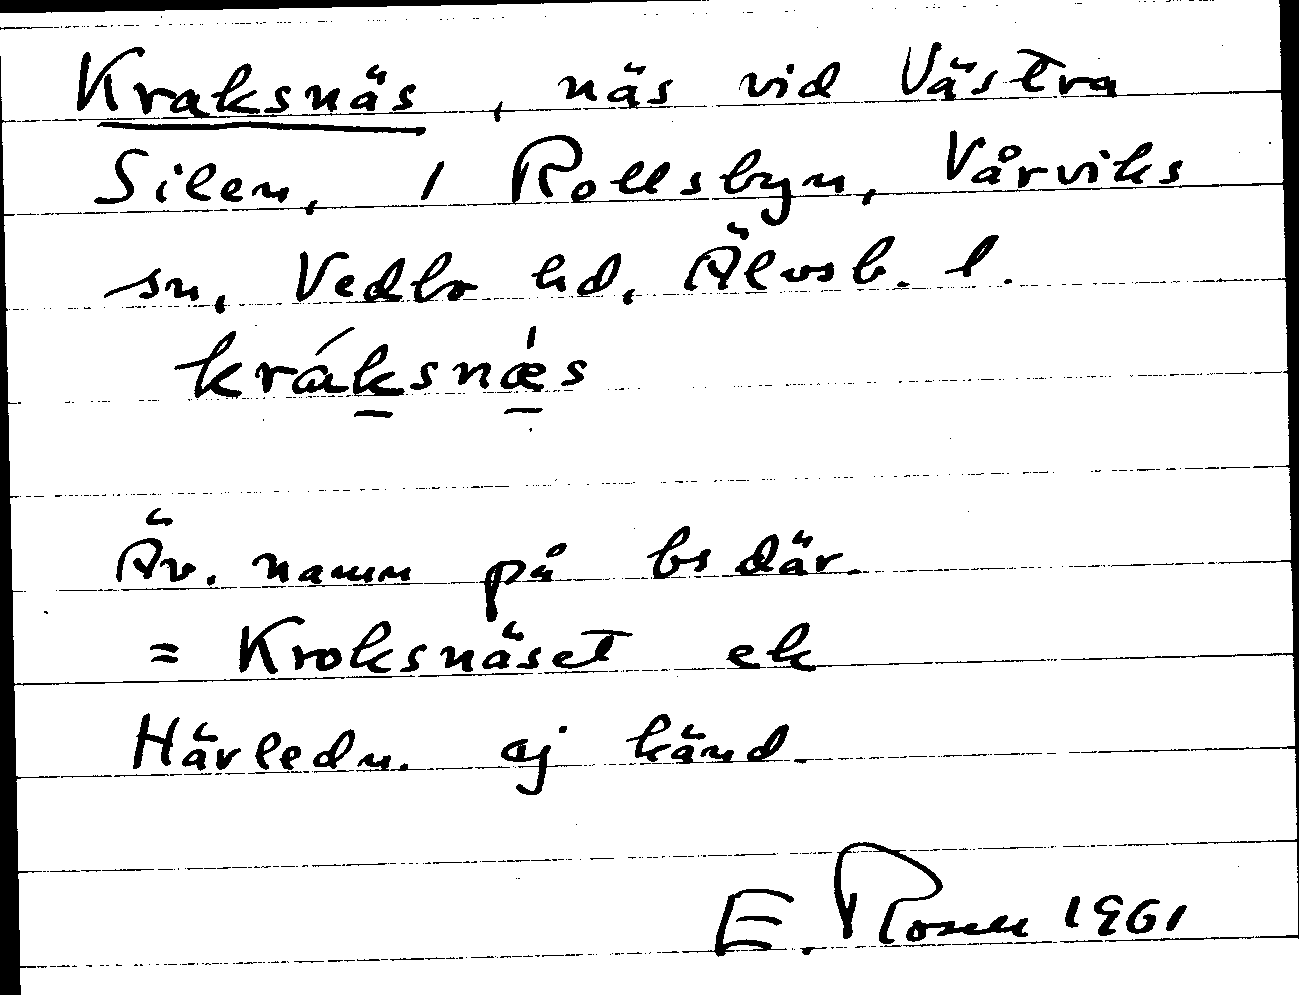 Kraksnäs, näs vid Västra
Silen, 1 Rollsbyn, Vårviks
sn, Vedbo hd, Älvsb. l.
kráksnæ̀s
Äv. namn på bs där.
= Kroksnäset ek
Härledn. ej känd.
E. Rosell 1961